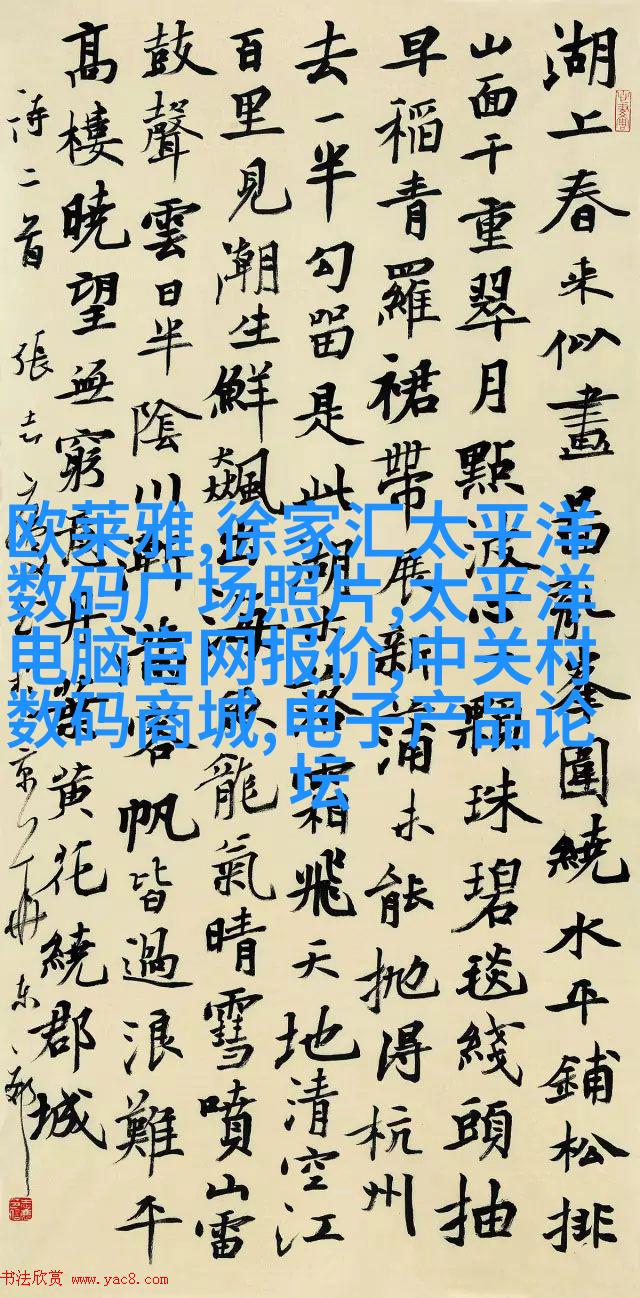 湖上春来似畫啚乱峯圍繞水平鋪松排
山面千重翠月點波心一顆珠碧毯綫頭抽
早稻青羅裙帶展新蒲未能抛得杭州
去一半勾留是此湖木落霜飛天地清空江
百里見潮生鮮飈出海魚龍氣晴雪噴山雷
鼓聲雲日半陰川漸滿客帆皆過浪難平
高樓曉望無窮意丹葉黄花繞郡城
詩二首 張志
欧莱雅,徐家汇太平洋
数码广场照片,太平洋
电脑官网报价,中关村
数码商城,电子产品论
坛
书法欣赏 www.yac8.com